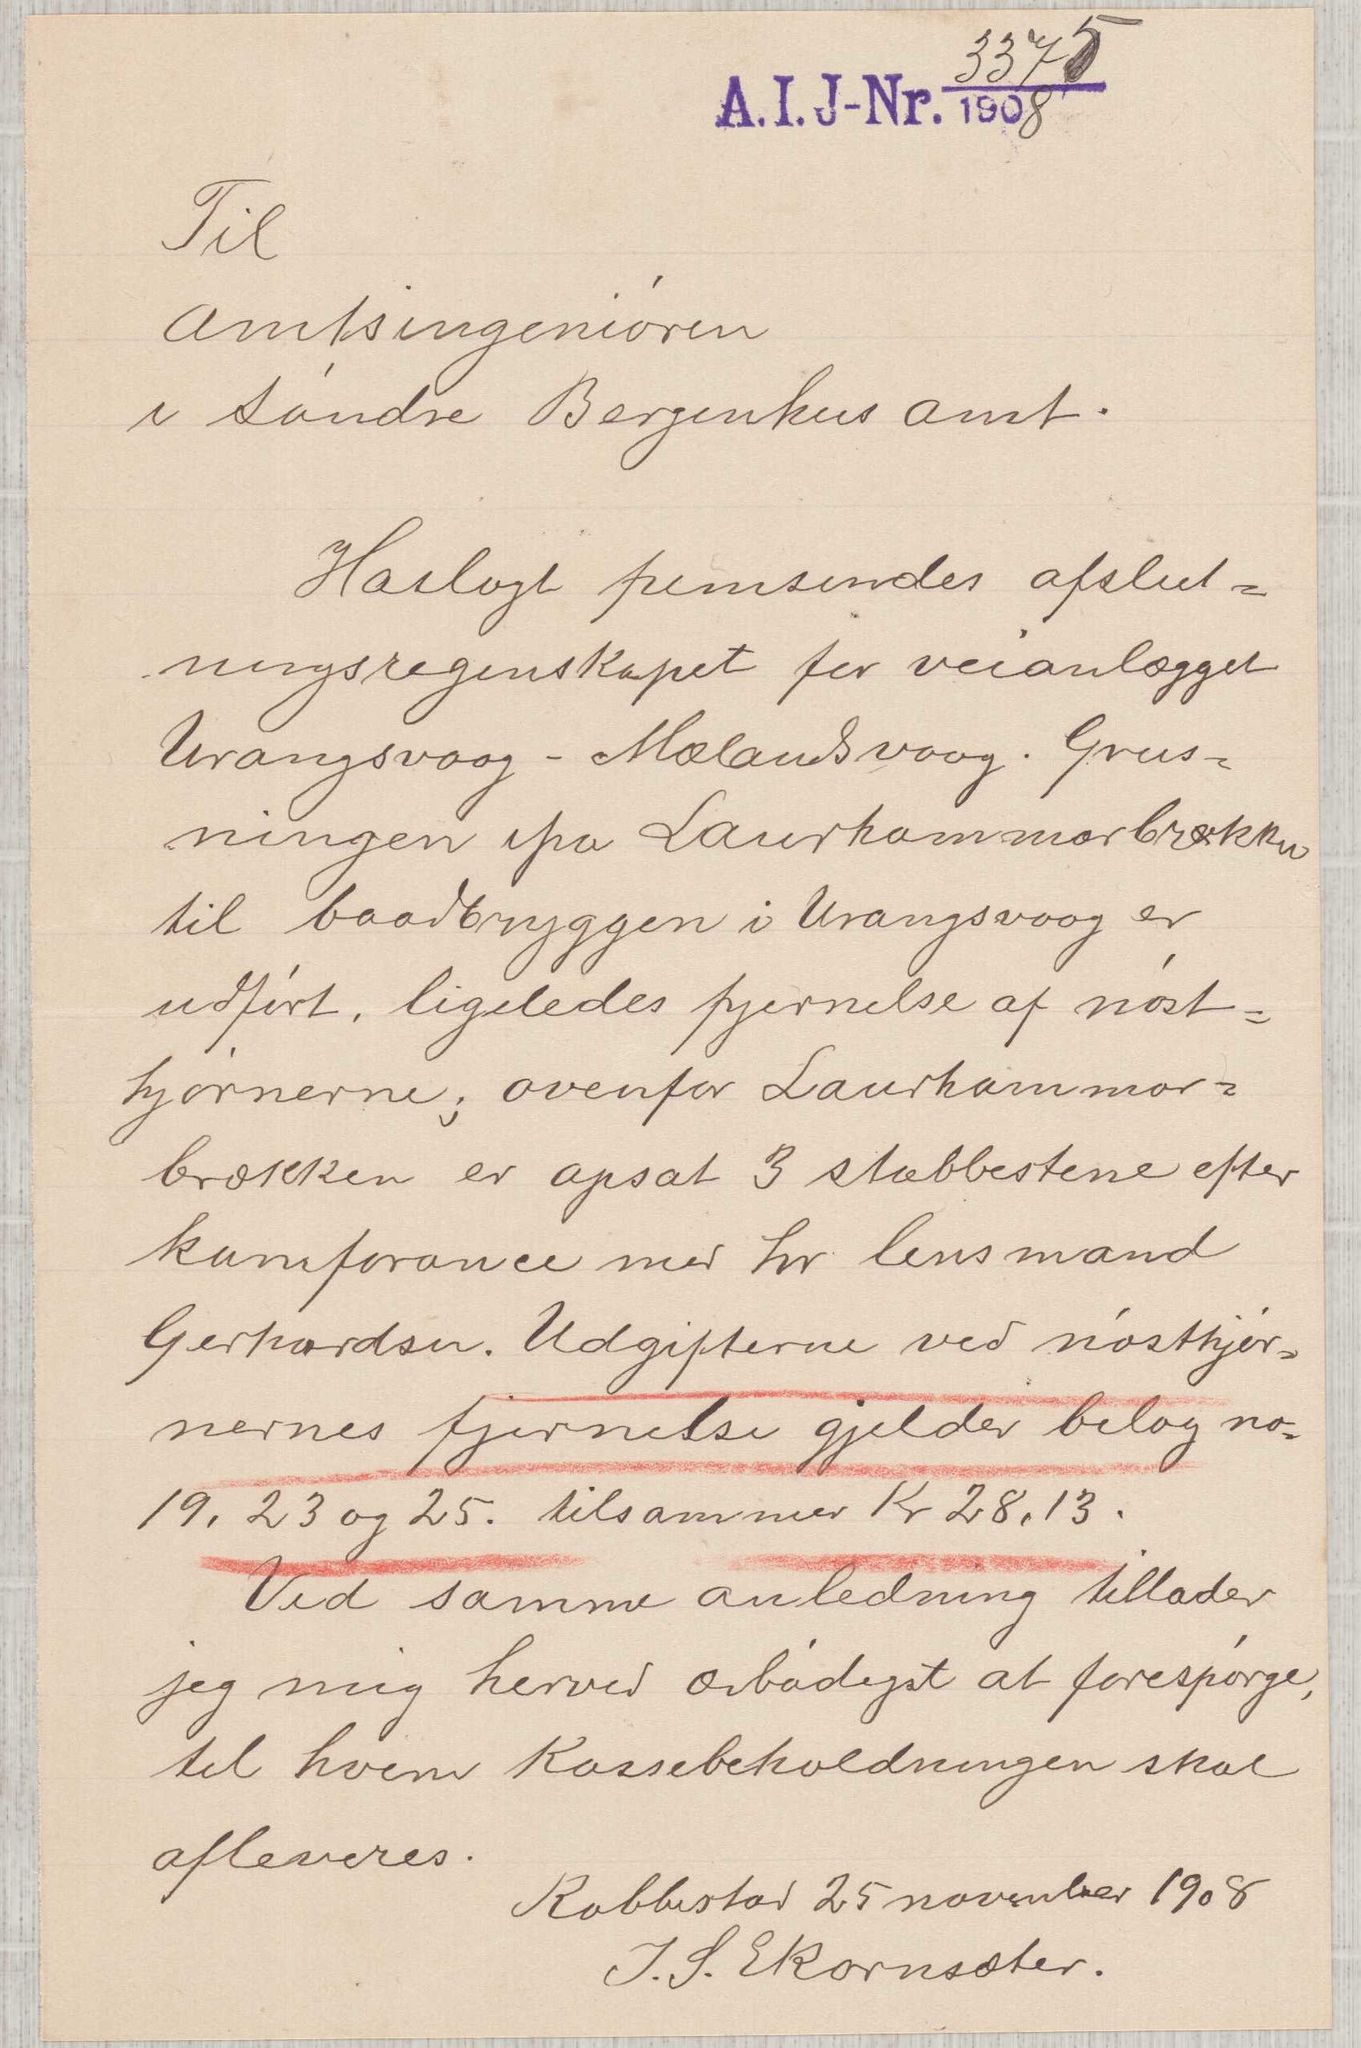 3375
A.I.J-Nr. 1908
Til
Amtsingeniören
i Söndre Bergenhus amt.
Haslagt fremsendes afslut=
ningsregenskapet for veianlægget
Urangsvaag - Mælandsvaag. Grus=
ningen fra Laurhammarbrækken
til baadbryggen i Urangsvaag er
udfört, ligeledes fjernelse af nöst=
hjörnerne; ovenfor Laurhammar=
brækken er opsat 3 stabbestene efter
kamforance med hr lensmand
Gerhardsen. Udgifterne ved nösthjör=
nernes fjernelse gjelder belag no-
19, 23 og 25. tilsammen Kr 28,13.
Ved samme anledning tillader
jeg mig herved ærbödigst at forespörge,
til hvem Kassebeholdningen skal
afleveres.
Rabbestad 25 november 1908
J. S. Ekornsæter.